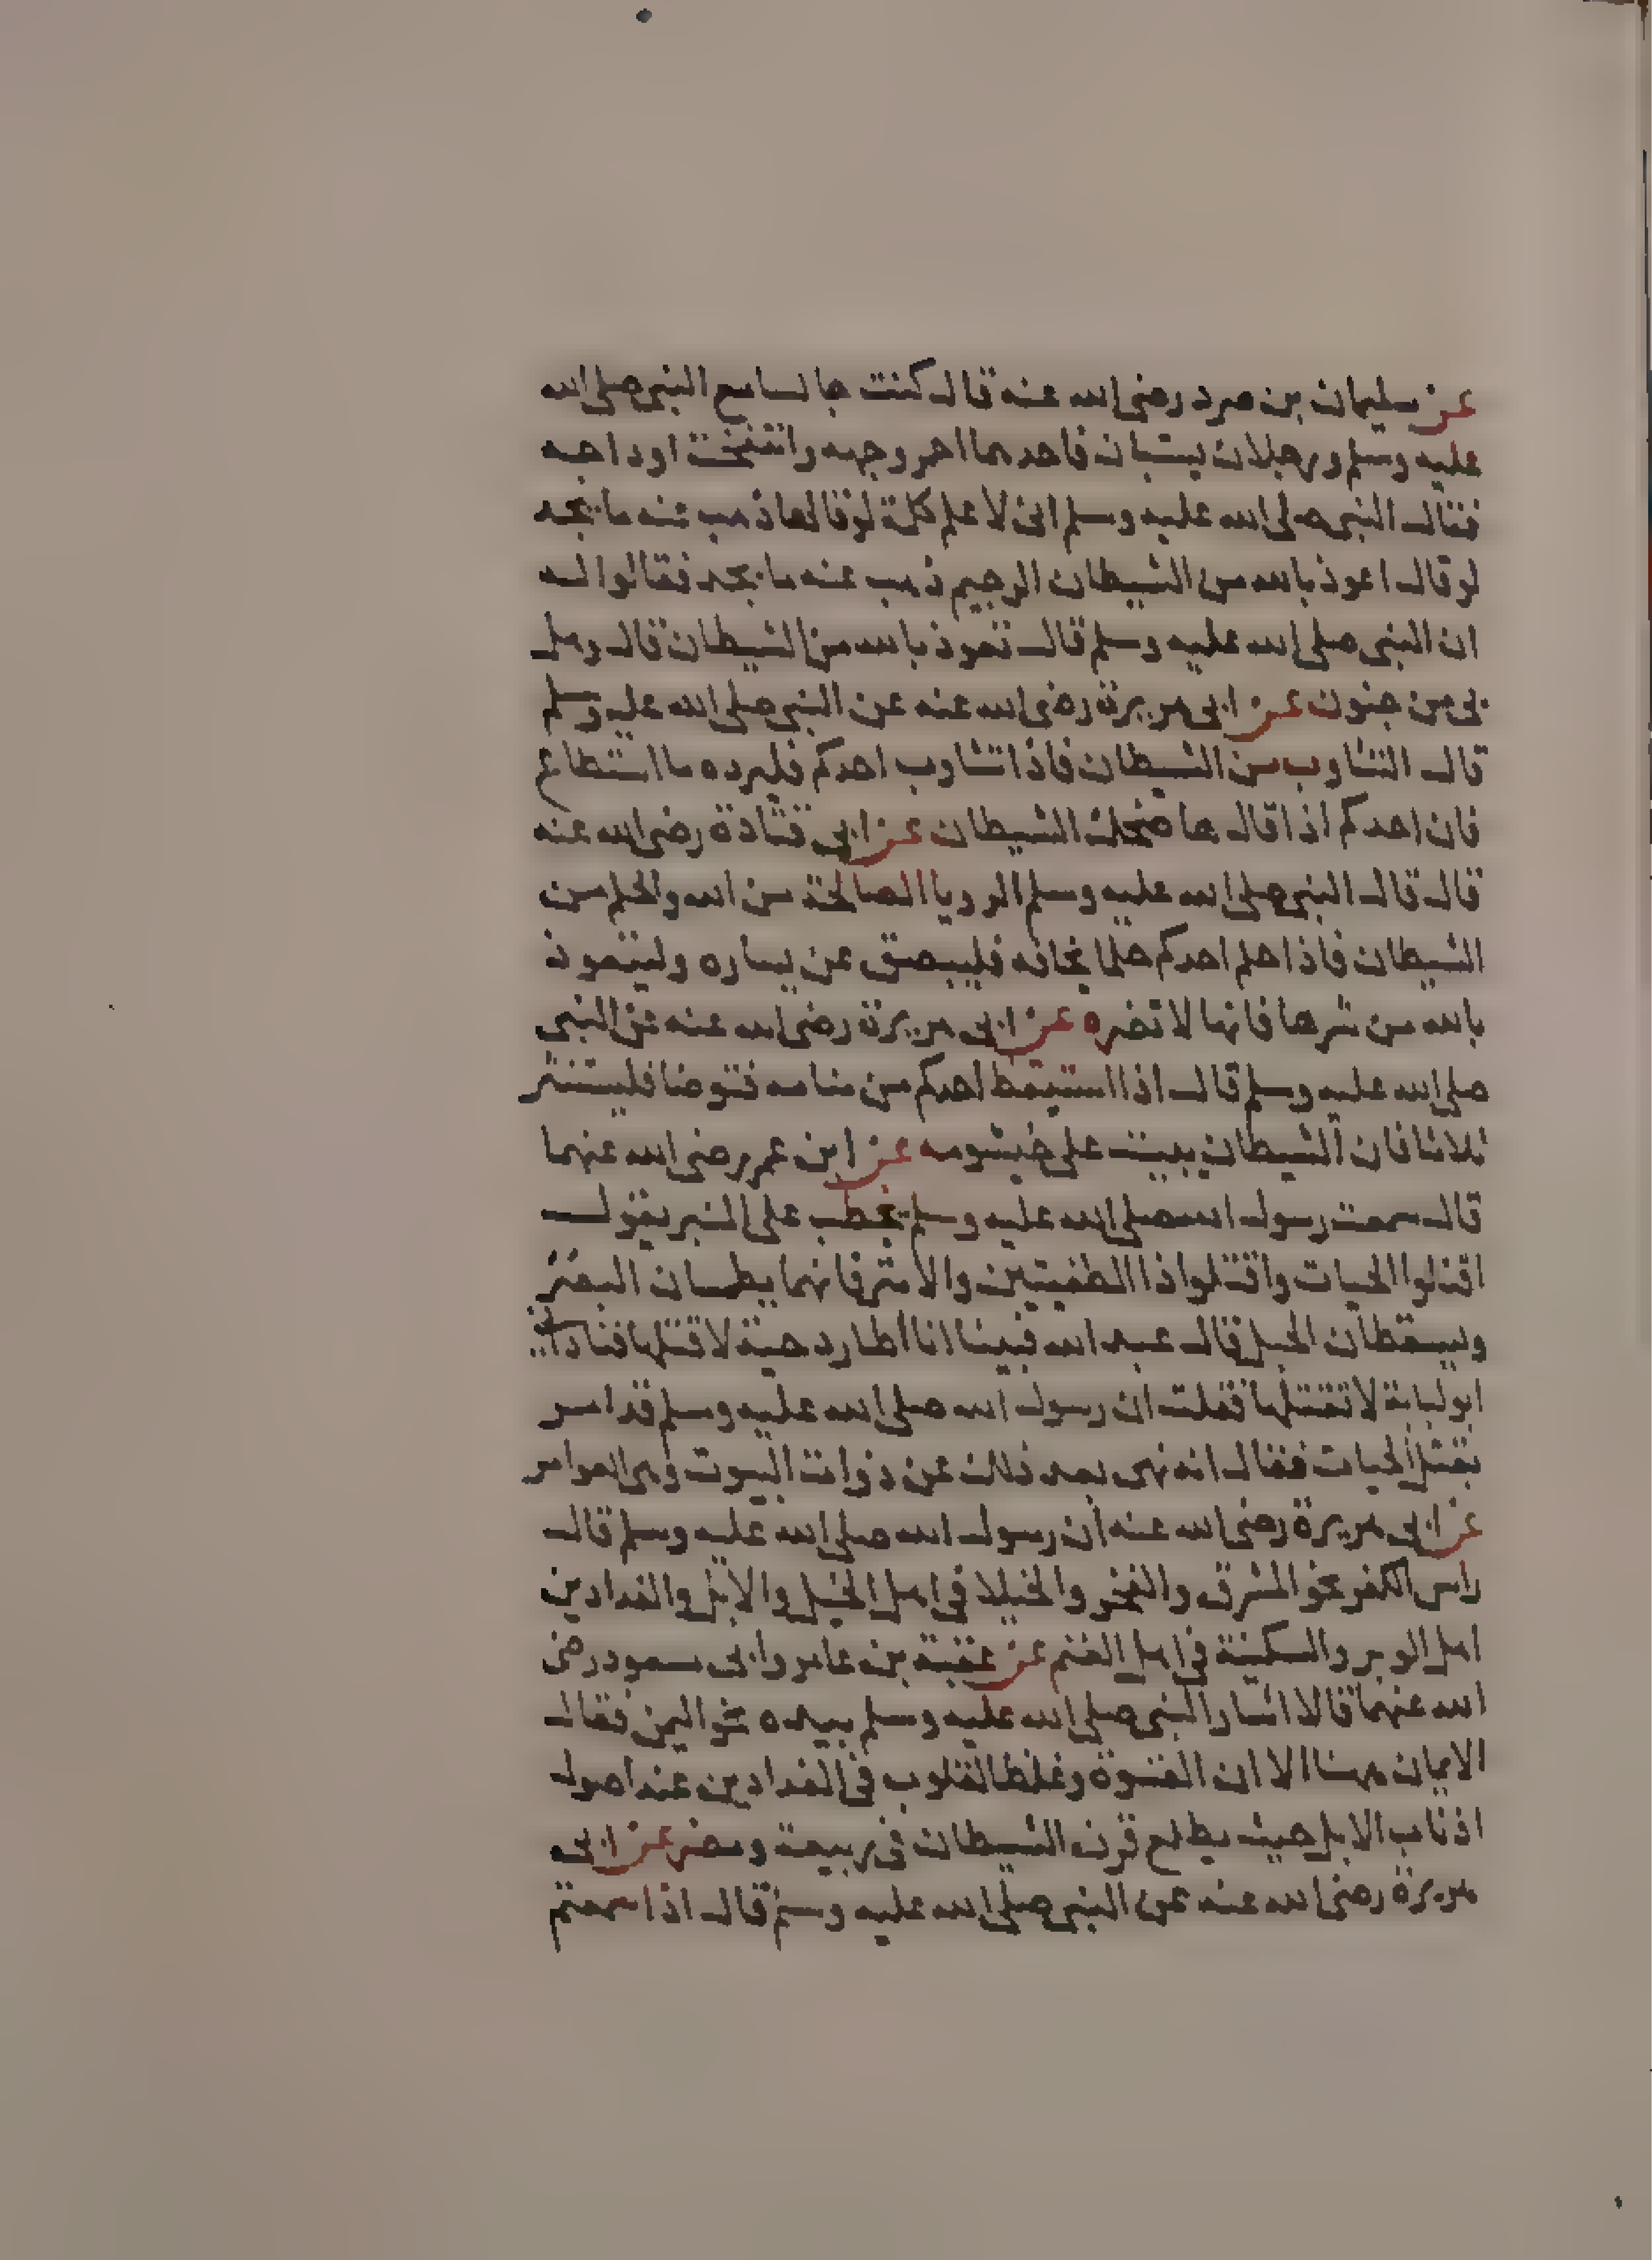 عن سليمان بن صرد رضى الله عنه قال كنت جالسا مع النبى صلى الله
عليه وسلم ورجلان يستبان فاحدهما احمر وجهه وانتفخت اوداجه
فقال النبى صلى الله عليه وسلم انى لاعلم كلمة لو قالها ذهب عنه ما يجد
لو قال اعوذ بالله من الشيطان الرجيم ذهب عنه ما يجد فقالوا له
ان النبى صلى الله عليه وسلم قال تعوذ بالله من الشيطان قال وهل
بى من جنون عن ابى هريرة رضى الله عنه عن النبى صلى الله عليه وسلم
قال التثاوب من الشيطان فاذا تثاوب احدكم فليرده ما استطاع
فان احدكم اذا قال ها ضحك الشيطان عن ابى قتادة رضى الله عنه
قال قال النبى صلى الله عليه وسلم الرويا الصالحة من الله والحلم من
الشيطان فاذا حلم احدكم حلما يخافه فليبصق عن يساره وليتعوذ
بالله من شرها فانها لا تضره عن ابى هريرة رضى الله عنه عن النبى
صلى الله عليه وسلم قال اذا استيقظ احدكم من منامه فتوضا فليستنثر
ثلاثا فان الشيطان يبيت على خيشومه عن ابن عمر رضى الله عنهما
قال سمعت رسول الله صلى الله عليه وسلم يخطب على المنبر يقول
اقتلوا الحيات واقتلوا ذا الطفيتين والابتر فانهما يطمسان البصر
ويسقطان الحبل قال عبد الله فبينا انا اطارد حية لاقتلها فنادانى
ابو لبابة لا تقتلها فقلت ان رسول الله صلى الله عليه وسلم قد امر
بقتل الحيات فقال انه نهى بعد ذلك عن ذوات البيوت وهى العوامر
عن ابى هريرة رضى الله عنه ان رسول الله صلى الله عليه وسلم قال
راس الكفر نحو المشرق والفخر والخيلا فى اهل الخيل والابل والفدادين
اهل الوبر والسكينة فى اهل الغنم عن عقبة بن عامر وابى مسعود رضى
الله عنهما قالا اشار النبى صلى الله عليه وسلم بيده نحو اليمن فقال
الايمان ههنا الا ان القسوة وغلظ القلوب فى الفدادين عند اصول
اذناب الابل حيث يطلع قرن الشيطان فى ربيعة ومضر عن ابى
هريرة رضى الله عنه عن النبى صلى الله عليه وسلم قال اذا سمعتم